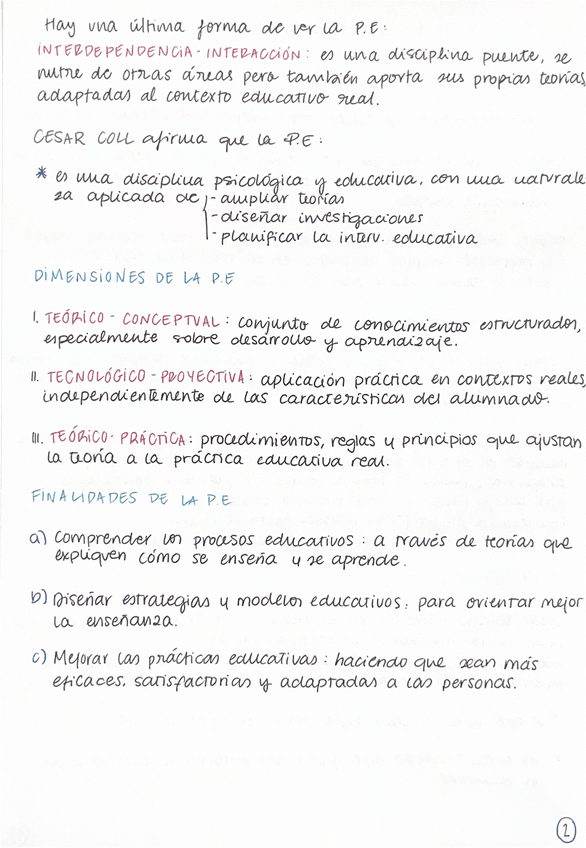 Hay una última forma de ver la P.E:
INTERDEPENDENCIA - INTERACCIÓN: es una disciplina puente, se
nutre de otras áreas pero también aporta sus propias teorías,
adaptadas al contexto educativo real.
CESAR COLL afirma que la P.E:
* es una disciplina psicológica y educativa, con una naturale
za aplicada de - ampliar teorías
- diseñar investigaciones
- planificar la interv. educativa
DIMENSIONES DE LA P.E
I. TEÓRICO - CONCEPTUAL: conjunto de conocimientos estructurados,
especialmente sobre desarrollo y aprendizaje.
II. TECNOLÓGICO - PROYECTIVA: aplicación práctica en contextos reales,
independientemente de las características del alumnado.
III. TEÓRICO-PRÁCTICA: procedimientos, reglas y principios que ajustan
la teoría a la práctica educativa real.
FINALIDADES DE LA P.E
a) Comprender los procesos educativos: a través de teorías que
expliquen cómo se enseña y se aprende.
b) Diseñar estrategias y modelos educativos: para orientar mejor
la enseñanza.
c) Mejorar las prácticas educativas: haciendo que sean más
eficaces, satisfactorias y adaptadas a las personas.
2